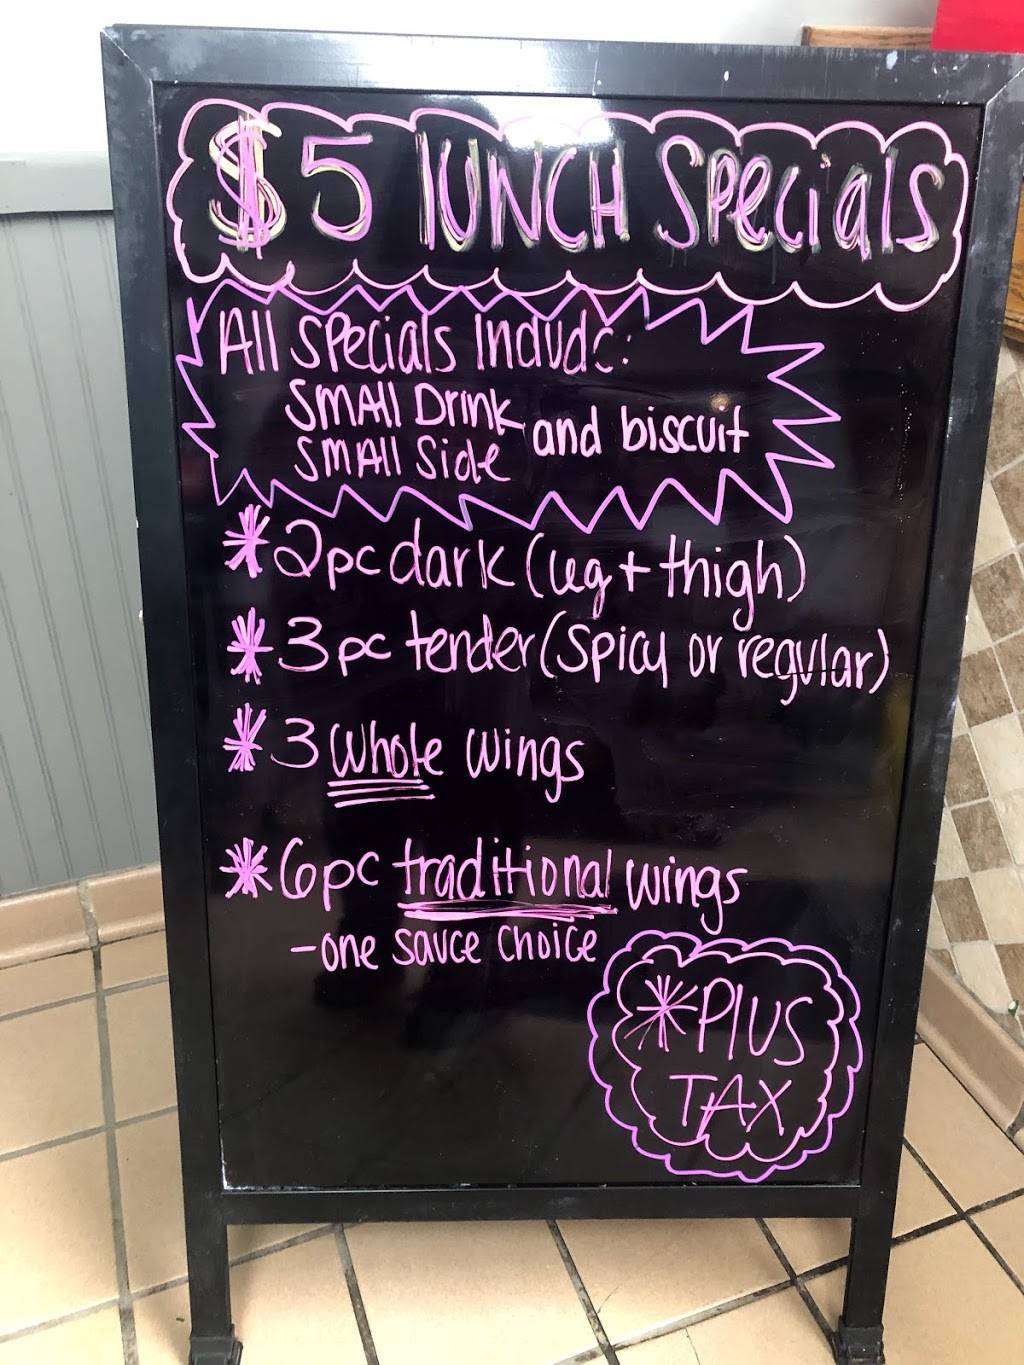 $5 lUNCH Specials
All specials Include:
SMAll Drink
SMAll Side and biscuit
* 2pc dark (leg + thigh)
* 3 pc tender (spicy or regular)
* 3 whole wings
* 6pc traditional wings
- one sauce choice
* Plus
TAX